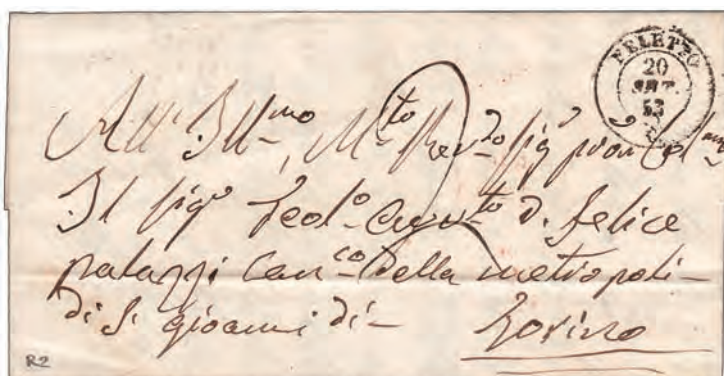 FELETTO
20
SET.
53
All' Ill-mo, M-to Rev-do Sig.
Il Sig. Teol-o Avv-to D. Felice
palazzi Can-co della metropoli-
di S. gioanni di- Torino
R2